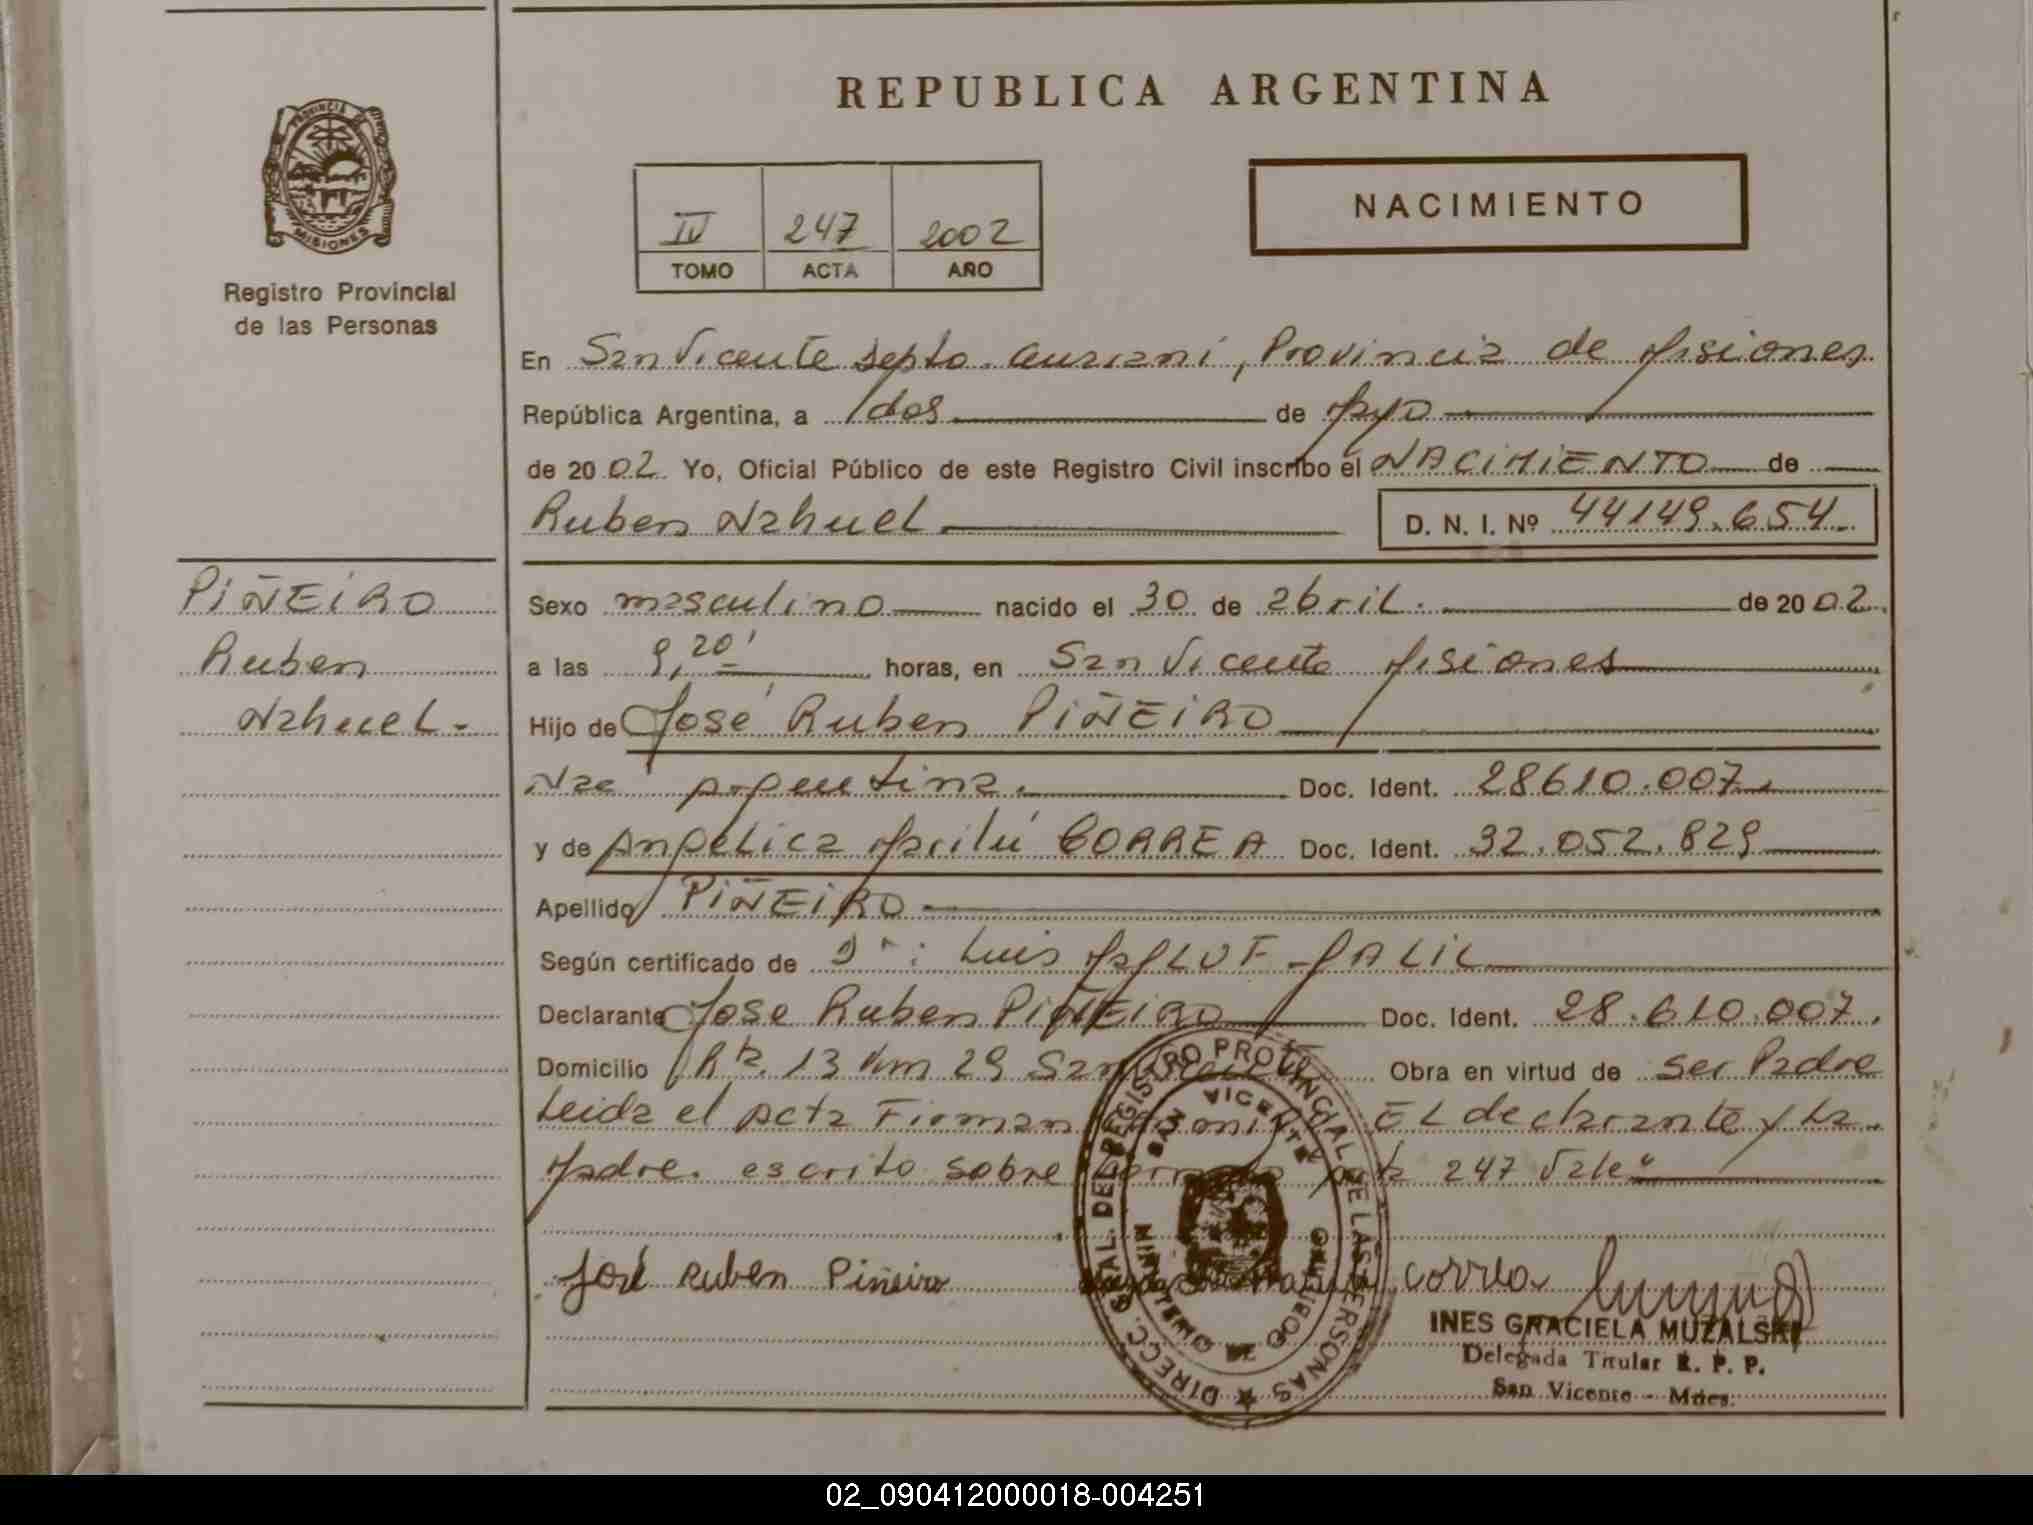 REPUBLICA ARGENTINA
PROVINCIA DE
MISIONES
Registro Provincial
de las Personas
IV 247 2002
TOMO ACTA AÑO
NACIMIENTO
En San Vicente Depto. Guarani, Provincia de Misiones
República Argentina, a dos de Mayo
de 2002 Yo, Oficial Público de este Registro Civil inscribo el NACIMIENTO de
Ruben Nahuel D. N. I. Nº 44149.654
PIÑEIRO
Ruben
Nahuel-
Sexo masculino nacido el 30 de abril. de 2002.
a las 9,20' horas, en San Vicente Misiones
Hijo de José Ruben PIÑEIRO
Nac Argentina. Doc. Ident. 28610.007
y de Angélica Marilú CORREA Doc. Ident. 32.052.829
Apellido PIÑEIRO
Según certificado de Dr: Luis MALUF
Declarante Jose Ruben PIÑEIRO Doc. Ident. 28.610.007.
Domicilio Rta. 13 Km 29 San Vicente Obra en virtud de ser Padre
Leida el Acta Firman conmigo EL declarante y La
Madre. escrito sobre borrado Acta 247 Vale"
José Ruben Piñeiro
Correa
INES GRACIELA MUZALSKI
Delegada Titular R. P. P.
San Vicente - Mnes.
DIRECC. GRAL. DEL REGISTRO PROVINCIAL DE LAS PERSONAS
SAN VICENTE
MINISTERIO DE GOBIERNO
02_090412000018-004251